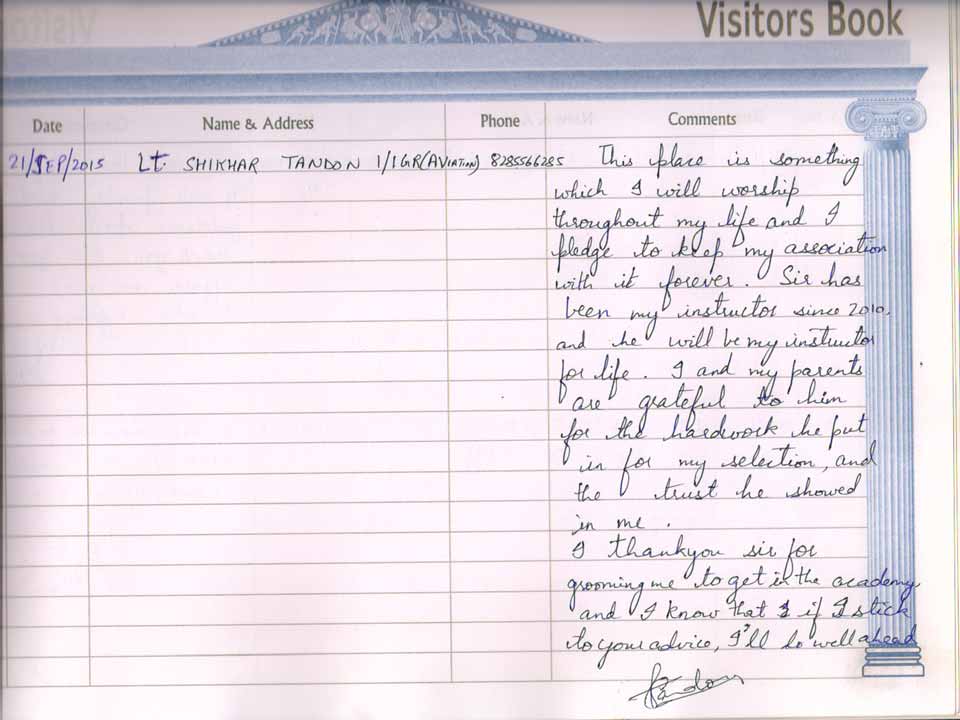 Visitors Book
Date Name & Address Phone Comments
21/SEP/2015 Lt. SHIKHAR TANDON 1/1GR(AViation) 8285566285 This place is something
which I will worship
throughout my life and I
pledge to keep my association
with it forever. Sir has
been my instructor since 2010.
and he will be my instructor
for life. I and my parents
are grateful to him
for the hardwork he put
in for my selection, and
the trust he showed
in me.
I thankyou sir for
grooming me to get in the academy
and I know that if I stick
to your advice, I'll do well ahead
Tandon